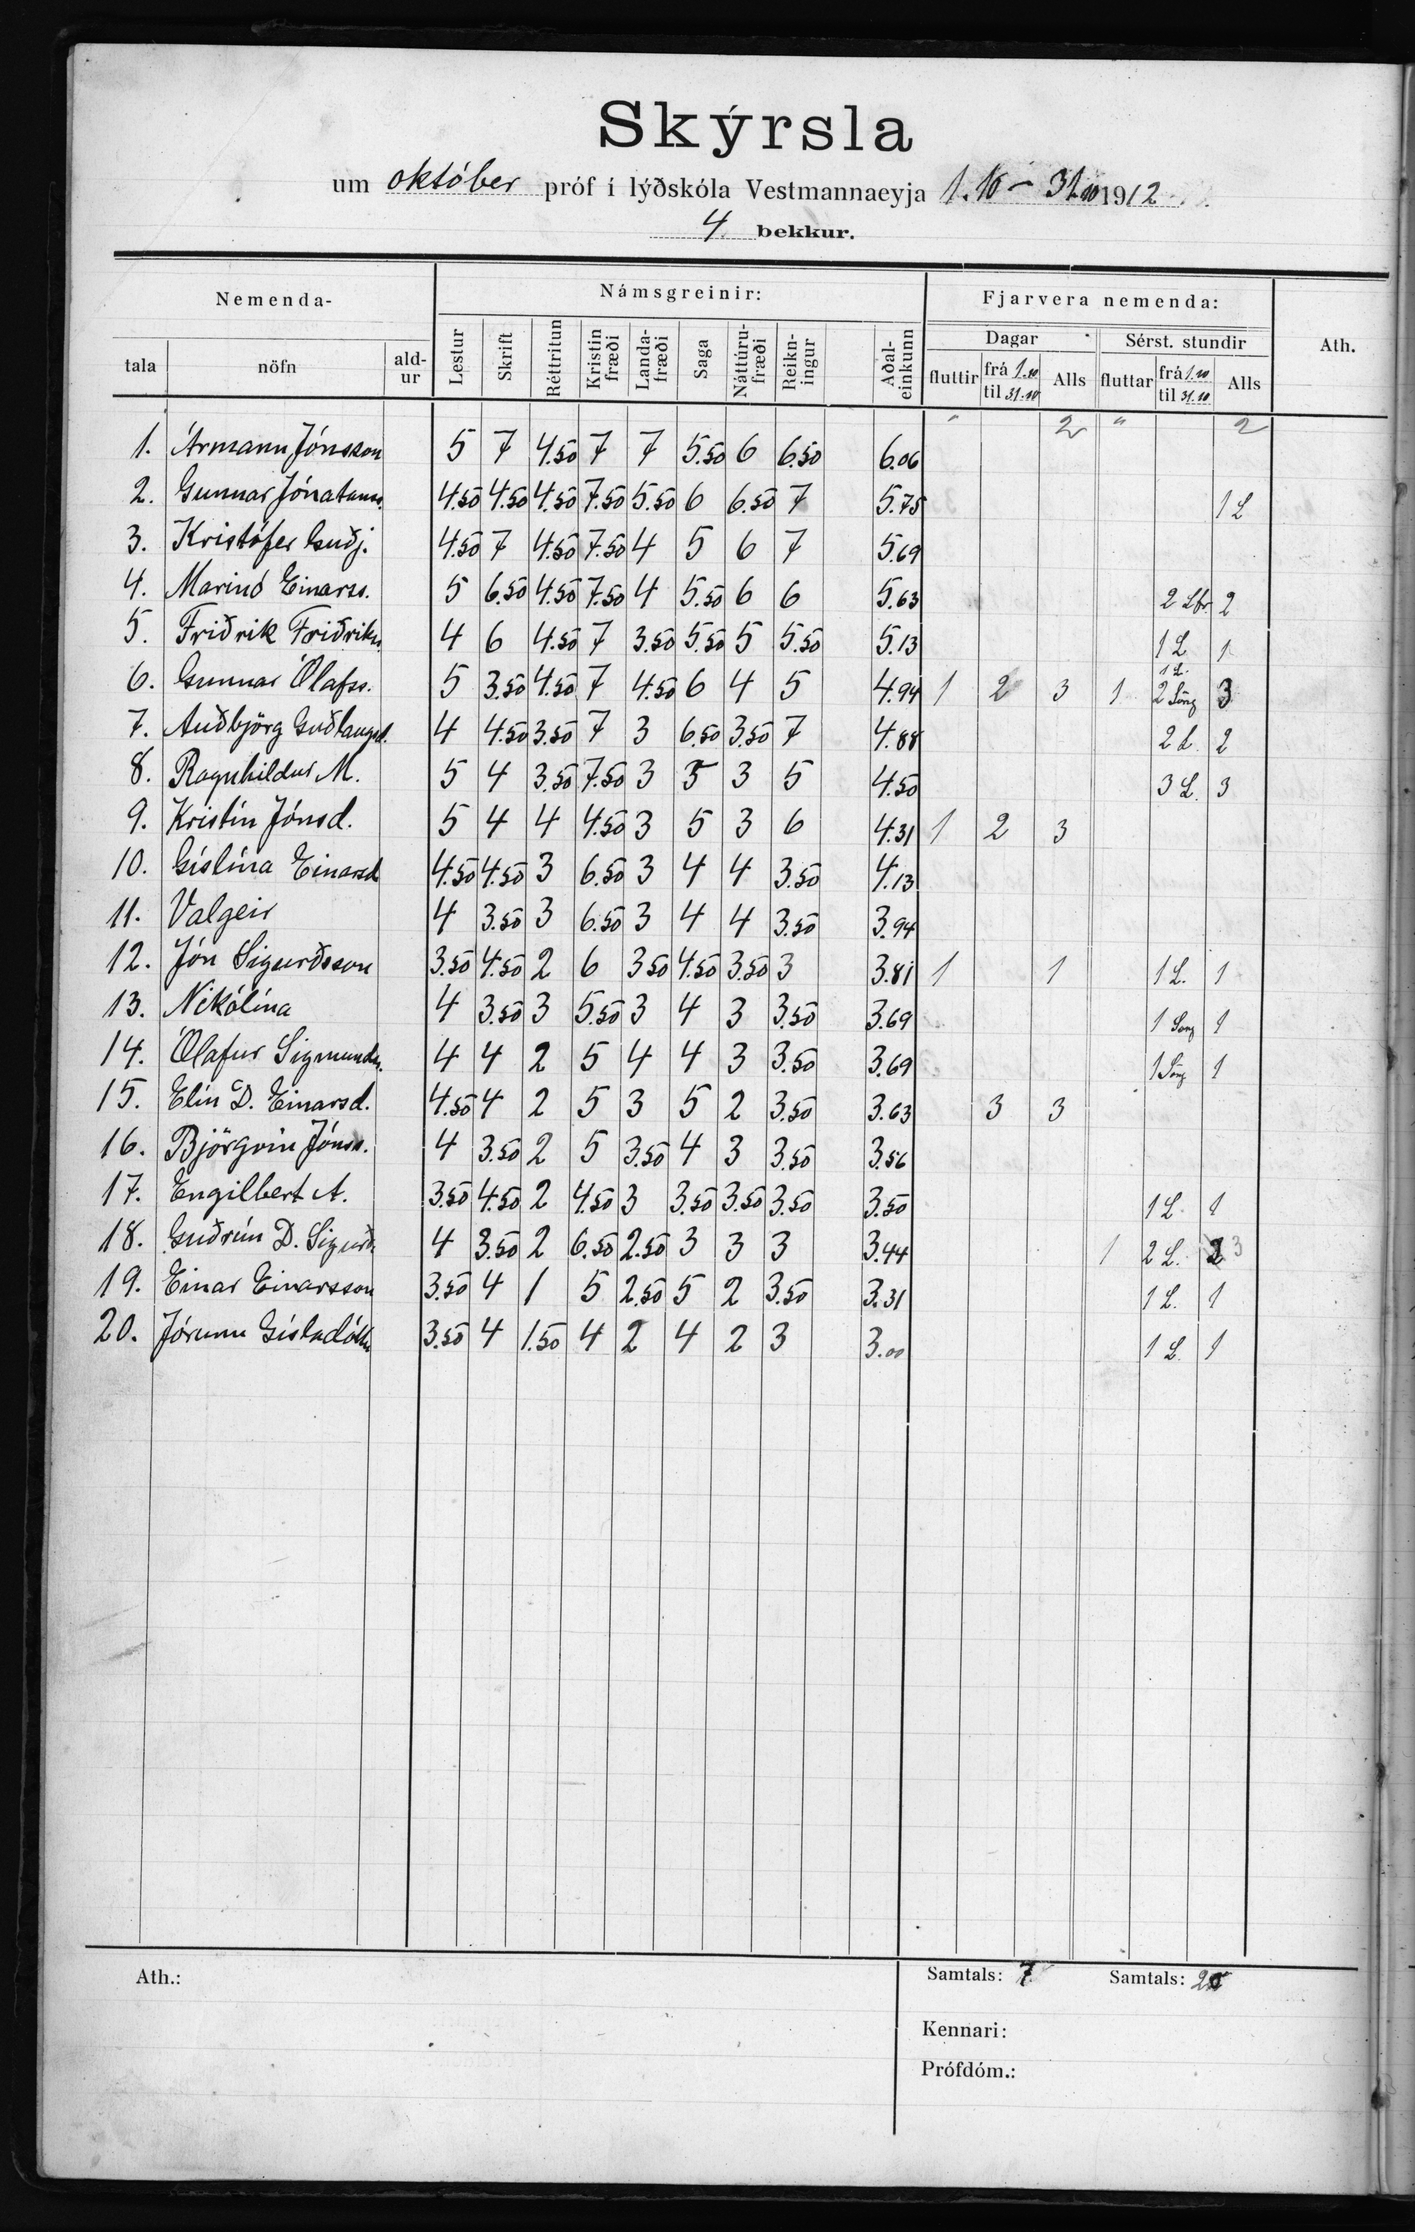 Skýrsla
um október próf í lýðskóla Vestmannaeyja 1.10 – 31.10 1912
4. bekkur.
Nemenda- Námsgreinir: Fjarvera nemenda: Ath.
Dagar Sérst. stundir
tala nöfn ald-ur Lestur Skrift Réttritun Kristin fræði Landa-fræði Saga Náttúru-fræði Reikn-ingur Aðal-einkunn fluttir frá 1.10 til 31.10 Alls fluttar frá 1.10 til 31.10 Alls
1. Ármann Jónsson 5 7 4.50 7 7 5.50 6 6.50 6.06 " 2 " 2
2. Gunnar Jónatanss. 4.50 4.50 4.50 7.50 5.50 6 6.50 7 5.75 1 L
3. Kristófer Guðj. 4.50 7 4.50 7.50 4 5 6 7 5.69
4. Marinó Einarss. 5 6.50 4.50 7.50 4 5.50 6 6 5.63 2 Lfr. 2
5. Friðrik Friðrikss. 4 6 4.50 7 3.50 5.50 5 5.50 5.13 1 L 1
6. Gunnar Ólafss. 5 3.50 4.50 7 4.50 6 4 5 4.94 1 2 3 1 1 L. 2 Söng 3
7. Auðbjörg Guðlaugsd. 4 4.50 3.50 7 3 6.50 3.50 7 4.88 2 L. 2
8. Ragnhildur M. 5 4 3.50 7.50 3 5 3 5 4.50 3 L. 3
9. Kristín Jónsd. 5 4 4 4.50 3 5 3 6 4.31 1 2 3
10. Gíslína Einarsd. 4.50 4.50 3 6.50 3 4 4 3.50 4.13
11. Valgeir 4 3.50 3 6.50 3 4 4 3.50 3.94
12. Jón Sigurðsson 3.50 4.50 2 6 3.50 4.50 3.50 3 3.81 1 1 1 L. 1
13. Nikólína 4 3.50 3 5.50 3 4 3 3.50 3.69 1 Söng 1
14. Ólafur Sigmundss. 4 4 2 5 4 4 3 3.50 3.69 1 Söng 1
15. Elín D. Einarsd. 4.50 4 2 5 3 5 2 3.50 3.63 3 3
16. Björgvin Jónss. 4 3.50 2 5 3.50 4 3 3.50 3.56
17. Engilbert A. 3.50 4.50 2 4.50 3 3.50 3.50 3.50 3.50 1 L. 1
18. Guðrún D. Sigurð. 4 3.50 2 6.50 2.50 3 3 3 3.44 1 2 L. 2 3
19. Einar Einarsson 3.50 4 1 5 2.50 5 2 3.50 3.31 1 L. 1
20. Jórunn Gísladóttir 3.50 4 1.50 4 2 4 2 3 3.00 1 L. 1
Ath.: Samtals: 7 Samtals:
Kennari:
Prófdóm.: